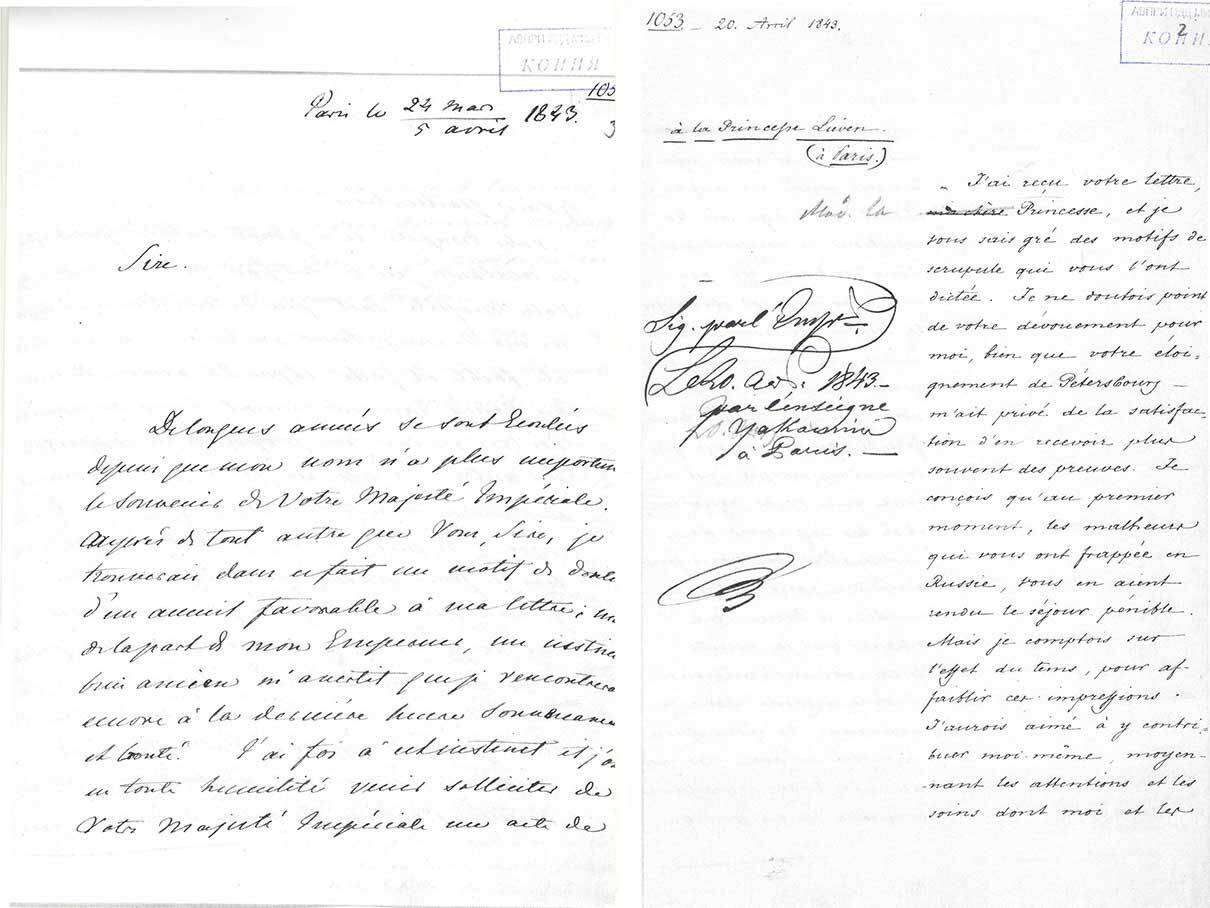 КОПИЯ
Paris le 24 mars
5 avril 1843.
Sire.
De longues années se sont écoulées
depuis que mon nom n'a plus importun
le souvenir de Votre Majesté Impériale.
Auprès de tout autre que Vous, Sire, je
trouverais dans ce fait un motif de doute
d'un accueil favorable à ma lettre;
de la part de mon Empereur, un instin
bien ancien m'avertit que je rencontrera
encore à la dernière heure
et bonté. J'ai foi à cet instinct et j'o
en toute humilité venir solliciter de
Votre Majesté Impériale un acte de
1053 _ 20. Avril 1843.
КОПИ
2
à la Princesse Lieven.
(à Paris.)
„ J'ai reçu votre lettre,
Mad. la ma chère Princesse, et je
vous sais gré des motifs de
scrupule qui vous l'ont
dictée. Je ne doutois point
de votre dévouement pour
moi, bien que votre éloi-
gnement de Pétersbourg –
m'ait privé de la satisfac-
tion d'en recevoir plus
souvent des preuves. Je
conçois qu'au premier
moment, les malheurs
qui vous ont frappée en
Russie, vous en aient
rendu le séjour pénible.
Mais je comptois sur
l'effet du tems, pour af-
faiblir ces impressions.
J'aurois aimé à y contri-
buer moi même, moyen-
nant les attentions et les
soins dont moi et les
Sig. par l'Emp
Le 20. 1843.–
par l'enseigne
à Paris. —